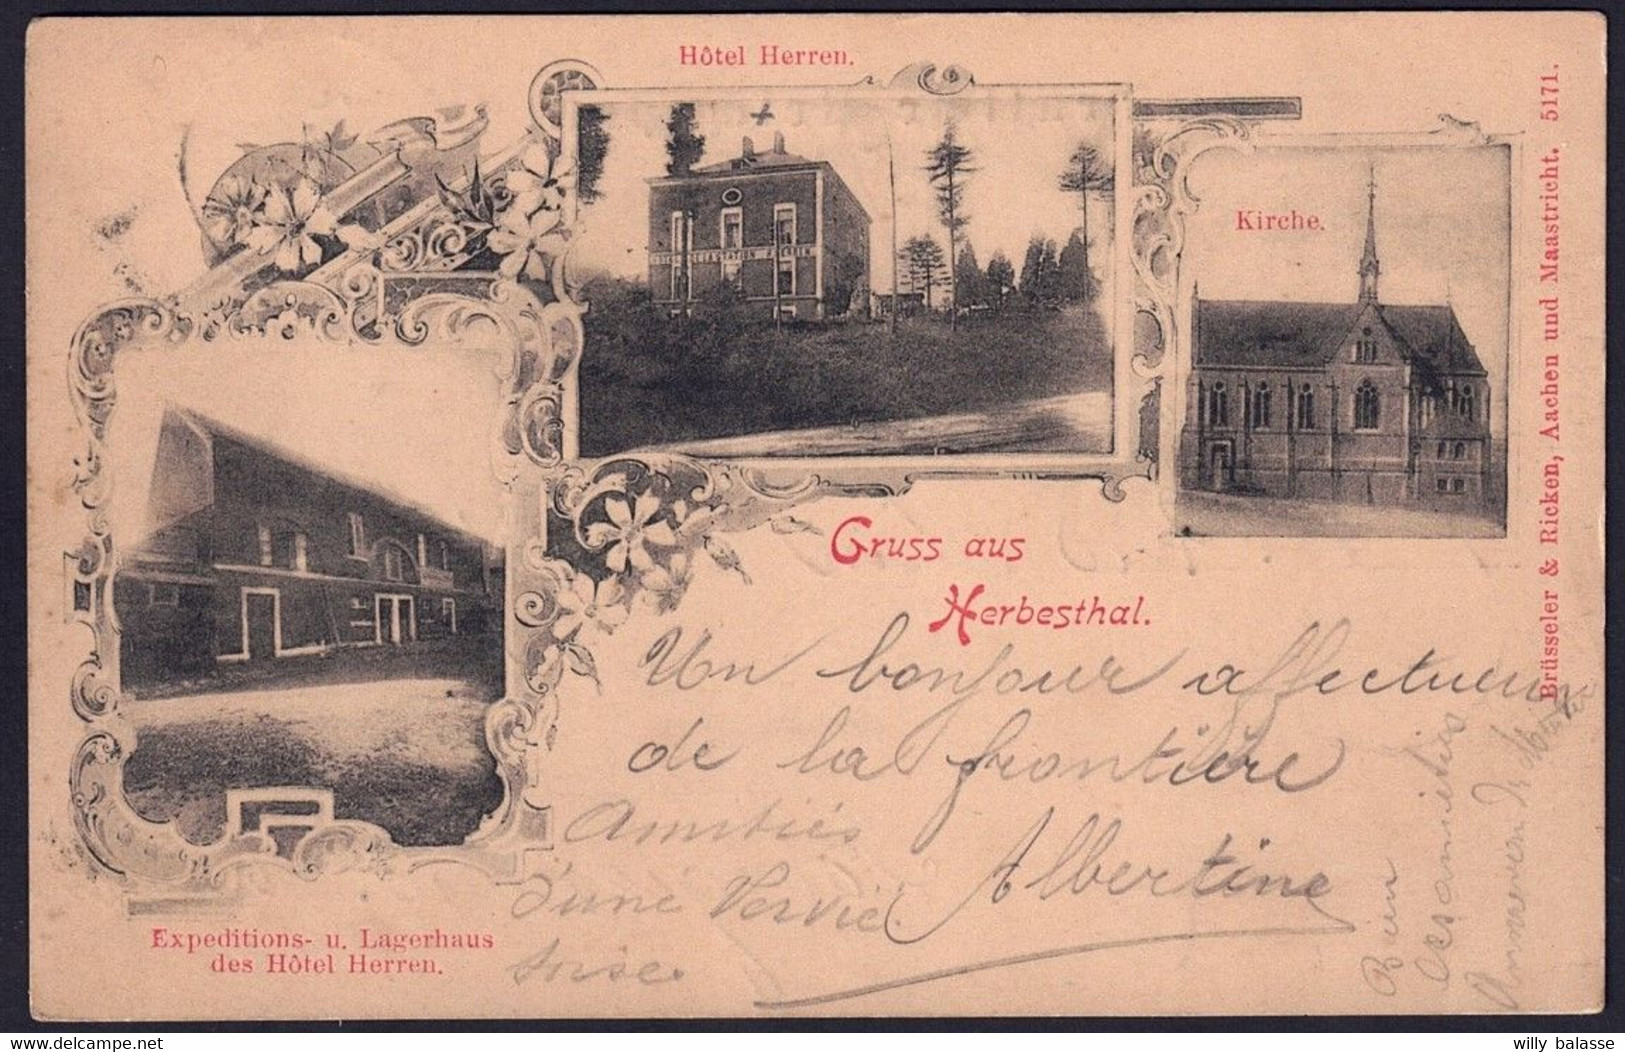 Hôtel Herren.
Kirche.
Brüsseler & Ricken, Aachen und Maastricht. 5171.
Gruss aus
Herbesthal.
Un bonjour affectueux
de la frontière
Albertine
Amitiés
d'une Vervié
toise
Bien
des amitiés
Expeditions- u. Lagerhaus
des Hôtel Herren.
willy balasse